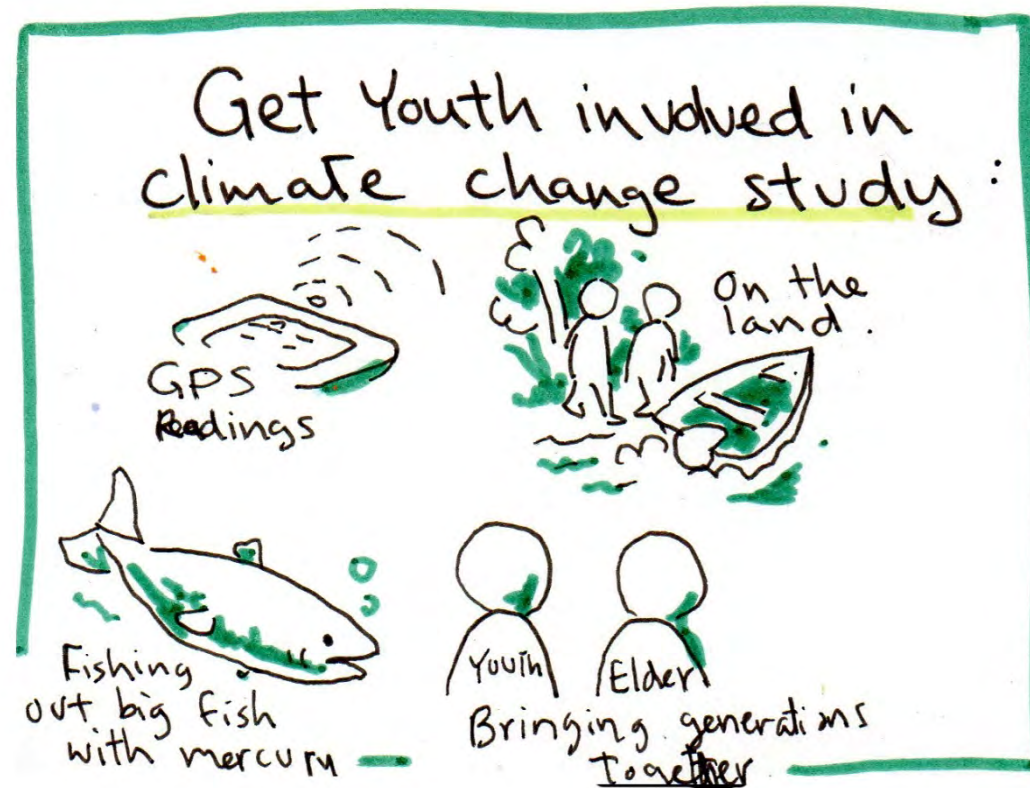 Get Youth involved in
climate change study:
GPS
Readings
On the
land.
Fishing
out big fish
with mercury
Youth
Elder
Bringing generations
together